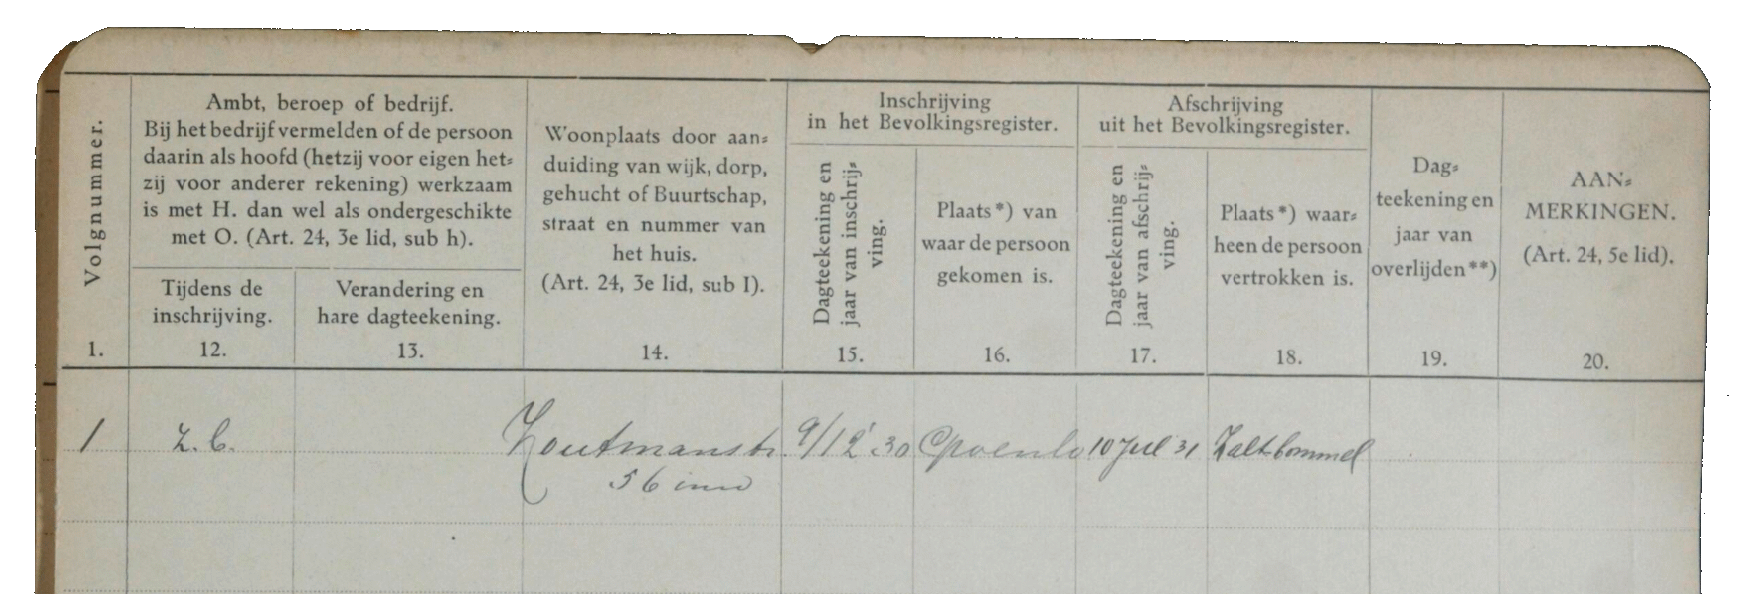 Volgnummer.
1.
Ambt, beroep of bedrijf.
Bij het bedrijf vermelden of de persoon
daarin als hoofd (hetzij voor eigen het=
zij voor anderer rekening) werkzaam
is met H. dan wel als ondergeschikte
met O. (Art. 24, 3e lid, sub h).
Tijdens de
inschrijving.
12.
Verandering en
hare dagteekening.
13.
Woonplaats door aan=
duiding van wijk, dorp,
gehucht of Buurtschap,
straat en nummer van
het huis.
(Art. 24, 3e lid, sub I).
14.
Inschrijving
in het Bevolkingsregister.
Dagteekening en
jaar van inschrij=
ving.
15.
Plaats*) van
waar de persoon
gekomen is.
16.
Afschrijving
uit het Bevolkingsregister.
Dagteekening en
jaar van afschrij=
ving.
17.
Plaats*) waar=
heen de persoon
vertrokken is.
18.
Dag=
teekening en
jaar van
overlijden**)
19.
AAN=
MERKINGEN.
(Art. 24, 5e lid).
20.
1 z.b. Zoutmanstr. 9/12 '30 10 Jul 31 Zaltbommel
56